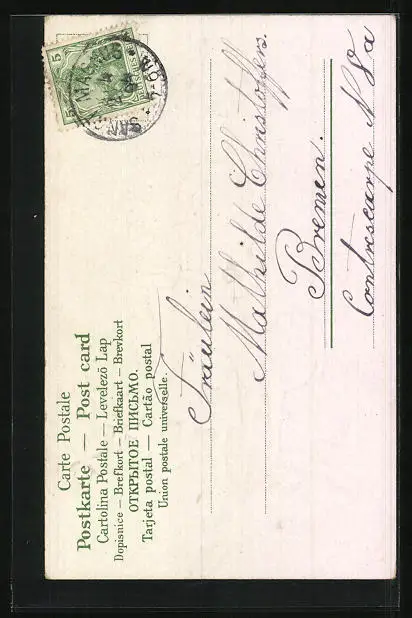 Carte Postale
Postkarte — Post card
Cartolina Postale — Levelező Lap
Dopisnice — Brefkort — Briefkaart — Brevkort
ОТКРЫТОЕ ПИСЬМО.
Tarjeta postal — Cartão postal
Union postale universelle.
5
5
Fräulein
Mathilde Christoffers.
Bremen.
Contrescarpe N